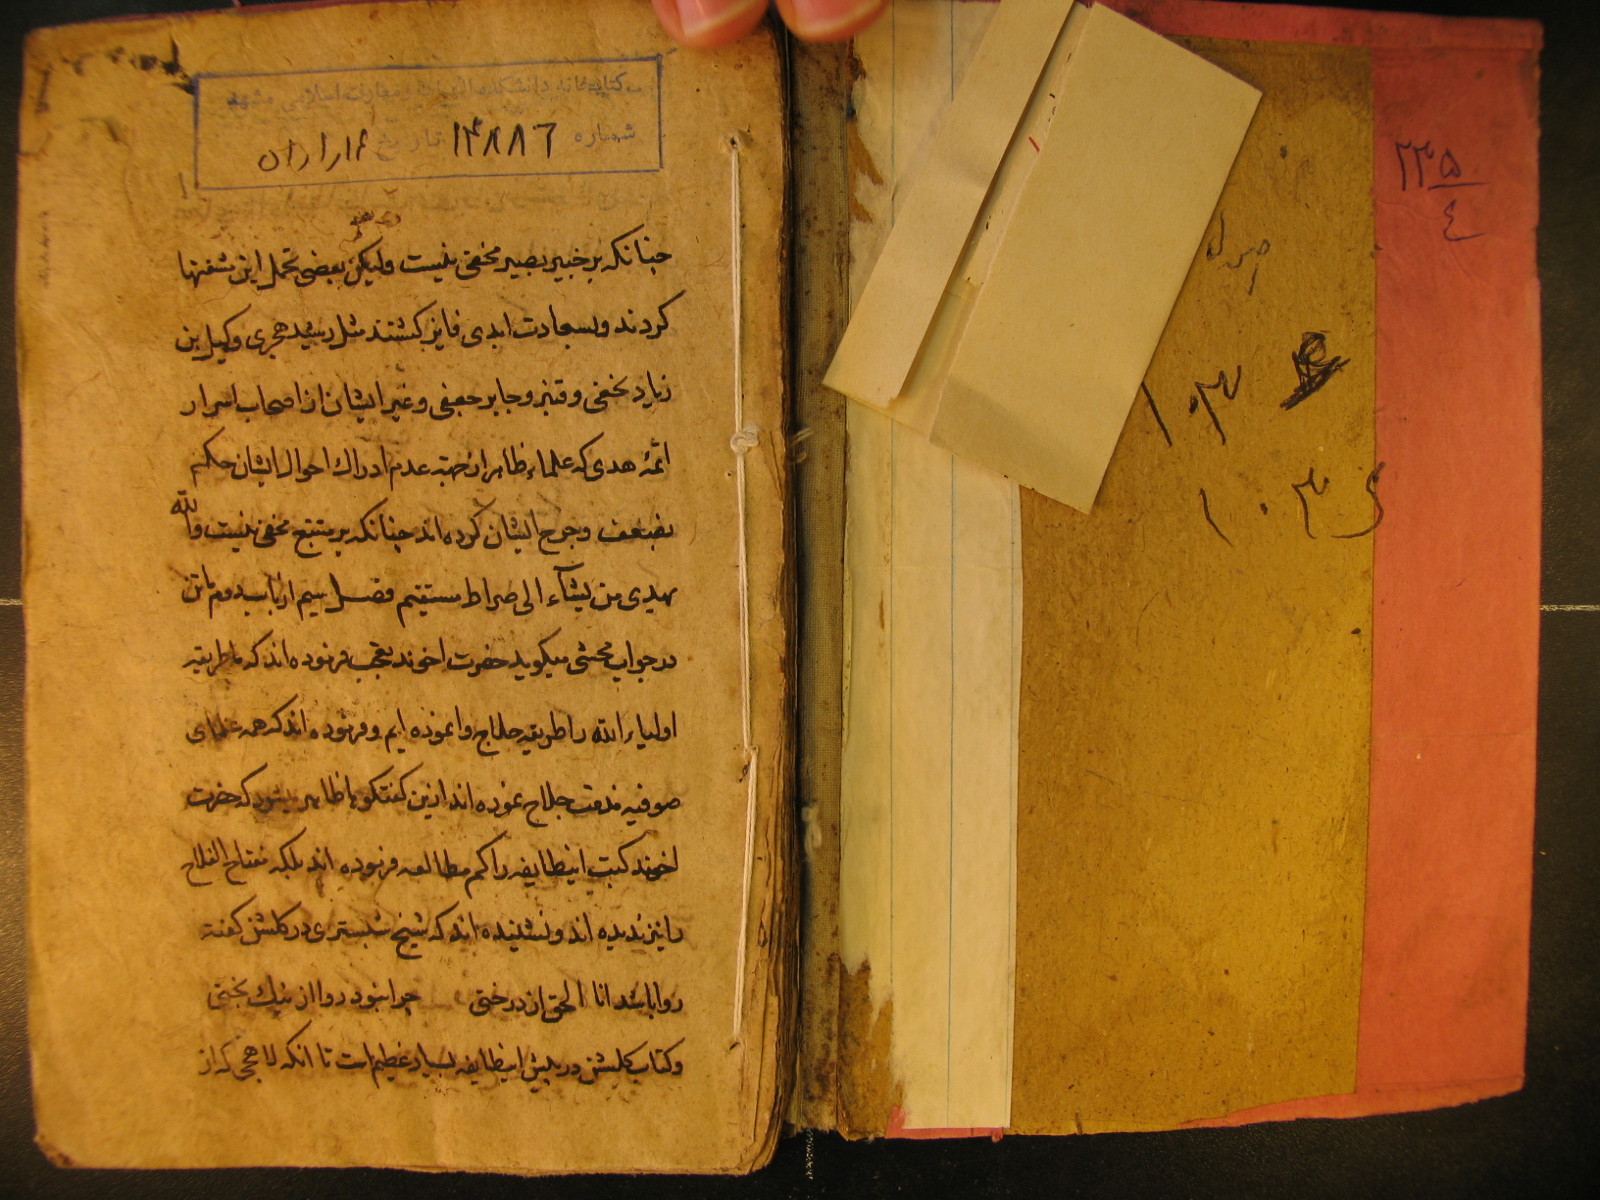 کتابخانه دانشکده الهیات و معارف اسلامی مشهد
شماره ۱۴۸۸۶ تاریخ
چنانکه بر خبیر بصیر مخفی نیست ولیکن بعضی تحمل این مشقتها
کردند و بسعادت ابدی فایز کشتند مثل رشید هجری و کمیل بن
زیاد نخعی و قنبر و جابر جعفی و غیر ایشان از اصحاب اسرار
ائمهٔ هدی که علماء ظاهر از جهة عدم ادراک احوال ایشان حکم
بضعف و جرح ایشان کرده اند چنانکه بر متتبع مخفی نیست والله
یهدی من یشآء الی صراط مستقیم فصل سیم از باب دوم متن
در جواب محشی میکوید حضرت اخوند تعجب فرموده اند که ما طریقه
اولیاء الله را طریقه حلاج وانموده ایم و فرموده اند که همه علمای
صوفیه مذمت حلاج نموده اند ازین کفتکوها ظاهر میشود که حضرت
اخوند کتب اینطایفه را کم مطالعه فرموده اند بلکه مفتاح الفلاح
را نیز ندیده اند و نشنیده اند که شیخ شبستری در کلشن کفته
روا باشد انا الحق از درختی چرا نبود روا از نیک بختی
و کتاب کلشن در پیش اینطایفه بسیار عظیم است تا انکه لاهجی که از
۲۳۵
۴
۱۰۳
۱۰۳۶